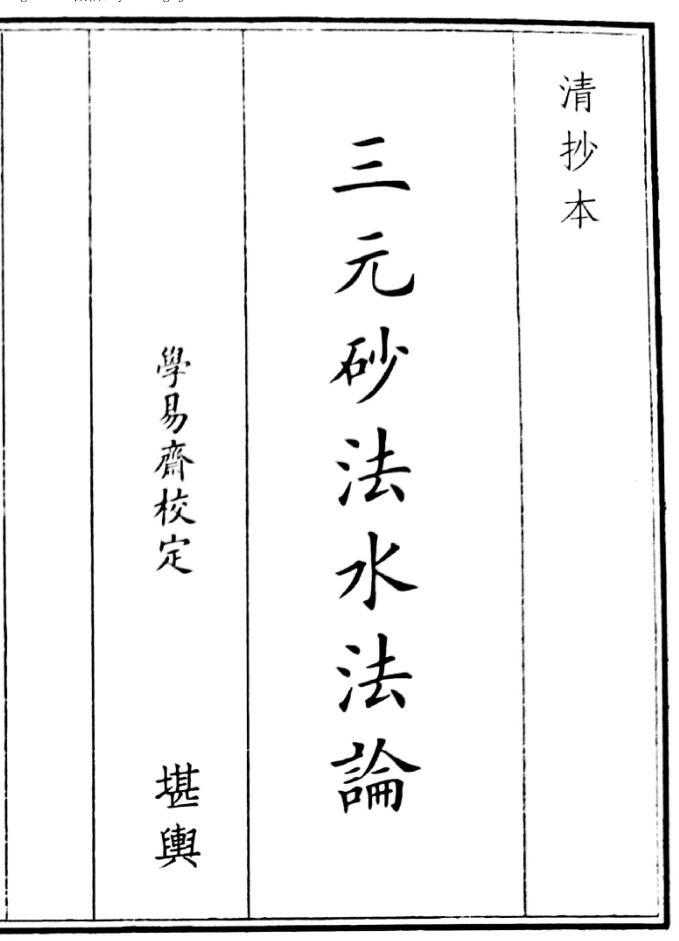 清抄本
三元砂法水法論
學易齋校定
堪輿